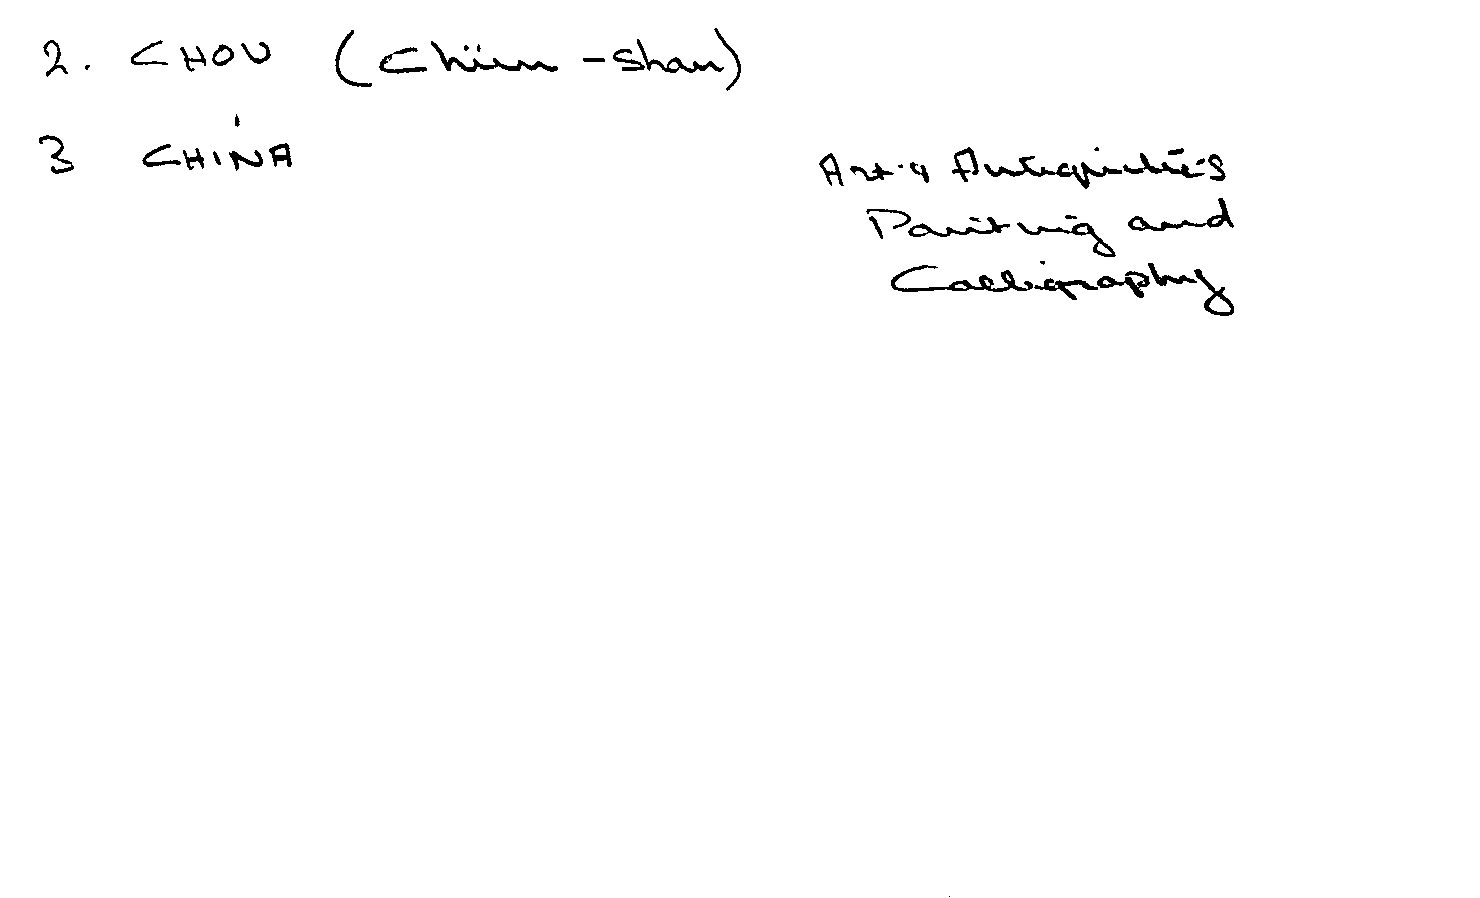 2. CHOU (Chüun-Shan)
3 CHINA
Art & Antiquities
Painting and
Calligraphy